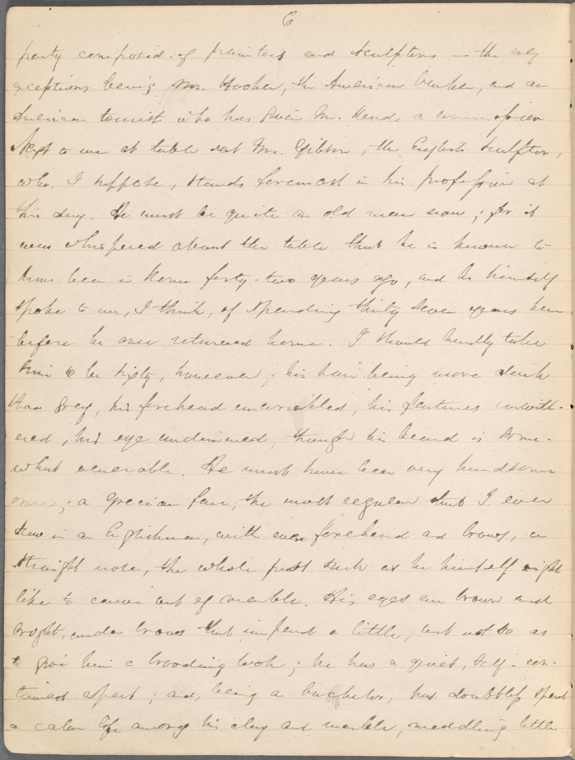 6
party composed of painters and sculptors — the only
exceptions being Mr. Hooker, the American banker, and an
American tourist who has given Mr. Reade a commission
Next to me at table sat Mr. Gibson, the English Sculptor,
who, I suppose, stands foremost in his profession at
this day. He must be quite an old man now; for it
was whispered about the table that he is known to
have been in Rome forty-two years ago, and he himself
spoke to me, I think, of spending thirty seven years here
before he once returned home. I should hardly take
him to be sixty, however; his hair being more dark
than grey, his forehead unwrinkled, his features unwith-
ered, his eye undimmed, though his beard is some-
what venerable. He must have been very handsome
once; a Grecian face, the most regular that I ever
saw in an Englishman, with even forehead and brows, a
straight nose, the whole just such as he himself might
like to carve out of marble. His eyes are brown and
bright, under brows that impend a little, but not so as
to give him a brooding look; he has a quiet, self-con-
tained aspect; and, being a bachelor, has doubtless spent
a calm life among his clay and marble, meddling little